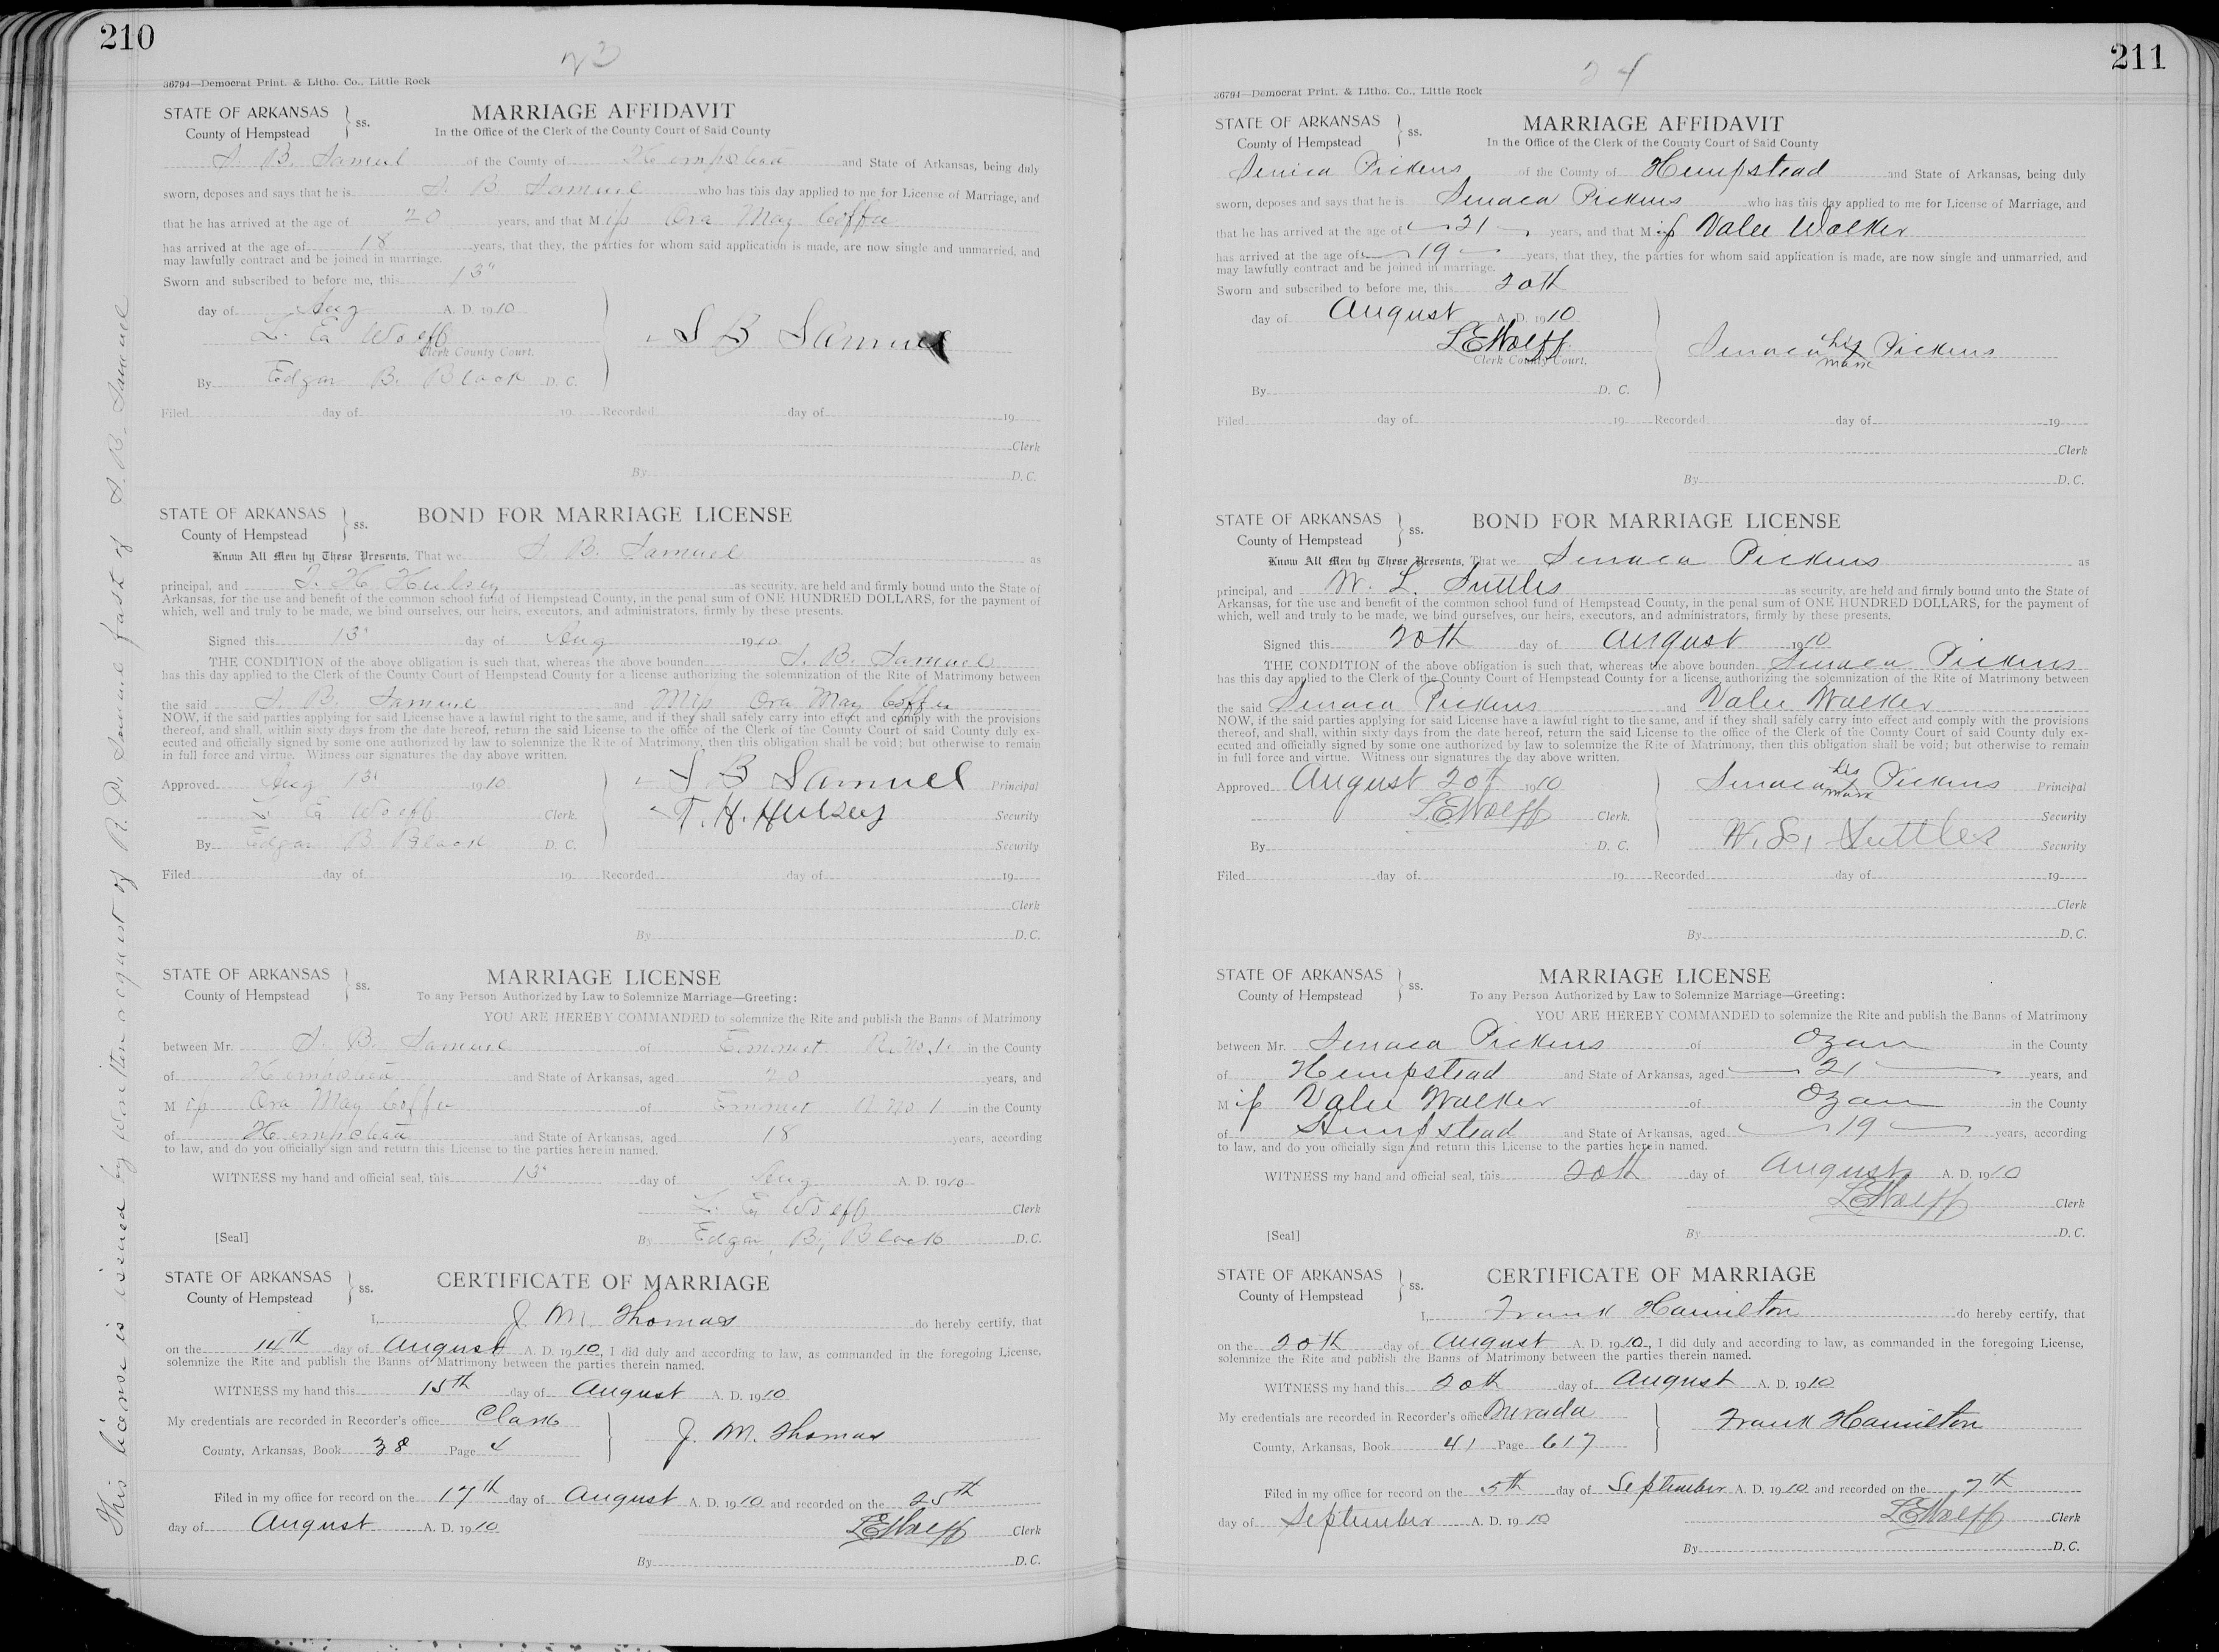 210
23
36794—Democrat Print. & Litho. Co., Little Rock
STATE OF ARKANSAS
County of Hempstead } ss.
MARRIAGE AFFIDAVIT
In the Office of the Clerk of the County Court of Said County
S. B. Samuel of the County of Hempstead and State of Arkansas, being duly
sworn, deposes and says that he is S. B. Samuel who has this day applied to me for License of Marriage, and
that he has arrived at the age of 20 years, and that Miss Ora May Coffee
has arrived at the age of 18 years, that they, the parties for whom said application is made, are now single and unmarried, and
may lawfully contract and be joined in marriage.
Sworn and subscribed to before me, this 13"
day of Aug A. D. 1910
L. E. Wolff
Clerk County Court.
S B Samuel
By Edgar B. Black D. C.
Filed day of 19 Recorded day of 19
Clerk
By D. C.
STATE OF ARKANSAS
County of Hempstead } ss.
BOND FOR MARRIAGE LICENSE
Know All Men by These Presents, That we S. B. Samuel as
principal, and T. H. Hulsey as security, are held and firmly bound unto the State of
Arkansas, for the use and benefit of the common school fund of Hempstead County, in the penal sum of ONE HUNDRED DOLLARS, for the payment of
which, well and truly to be made, we bind ourselves, our heirs, executors, and administrators, firmly by these presents.
Signed this 13" day of Aug 1910
THE CONDITION of the above obligation is such that, whereas the above bounden S. B. Samuel
has this day applied to the Clerk of the County Court of Hempstead County for a license authorizing the solemnization of the Rite of Matrimony between
the said S. B. Samuel and Miss Ora May Coffee
NOW, if the said parties applying for said License have a lawful right to the same, and if they shall safely carry into effect and comply with the provisions
thereof, and shall, within sixty days from the date hereof, return the said License to the office of the Clerk of the County Court of said County duly ex-
ecuted and officially signed by some one authorized by law to solemnize the Rite of Matrimony, then this obligation shall be void; but otherwise to remain
in full force and virtue. Witness our signatures the day above written.
Approved Aug 13" 1910
S B Samuel Principal
L. E. Wolff Clerk.
T. H. Hulsey Security
By Edgar B. Black D. C.
Security
Filed day of 19 Recorded day of 19
Clerk
By D. C.
STATE OF ARKANSAS
County of Hempstead } ss.
MARRIAGE LICENSE
To any Person Authorized by Law to Solemnize Marriage—Greeting:
YOU ARE HEREBY COMMANDED to solemnize the Rite and publish the Banns of Matrimony
between Mr. S. B. Samuel of Emmet R. No. 1. in the County
of Hempstead and State of Arkansas, aged 20 years, and
Miss Ora May Coffee of Emmet R. No. 1 in the County
of Hempstead and State of Arkansas, aged 18 years, according
to law, and do you officially sign and return this License to the parties herein named.
WITNESS my hand and official seal, this 13" day of Aug A. D. 1910
L. E. Wolff Clerk
[Seal] By Edgar B. Black D. C.
STATE OF ARKANSAS
County of Hempstead } ss.
CERTIFICATE OF MARRIAGE
I, J. M. Thomas do hereby certify, that
on the 14th day of August A. D. 1910, I did duly and according to law, as commanded in the foregoing License,
solemnize the Rite and publish the Banns of Matrimony between the parties therein named.
WITNESS my hand this 15th day of August A. D. 1910
My credentials are recorded in Recorder's office Clark
County, Arkansas, Book 38 Page 4
J. M. Thomas
Filed in my office for record on the 17th day of August A. D. 1910 and recorded on the 25th
day of August A. D. 1910
L E Wolff Clerk
By D. C.
This license is issued by written request of R. P. Samuel father of S. B. Samuel
211
24
36794—Democrat Print. & Litho. Co., Little Rock
STATE OF ARKANSAS
County of Hempstead } ss.
MARRIAGE AFFIDAVIT
In the Office of the Clerk of the County Court of Said County
Senica Pickens of the County of Hempstead and State of Arkansas, being duly
sworn, deposes and says that he is Senaca Pickens who has this day applied to me for License of Marriage, and
that he has arrived at the age of 21 years, and that Miss Valee Walker
has arrived at the age of 19 years, that they, the parties for whom said application is made, are now single and unmarried, and
may lawfully contract and be joined in marriage.
Sworn and subscribed to before me, this 20th
day of August A. D. 1910
L E Wolff
Clerk County Court.
Senaca his x mark Pickens
By D. C.
Filed day of 19 Recorded day of 19
Clerk
By D. C.
STATE OF ARKANSAS
County of Hempstead } ss.
BOND FOR MARRIAGE LICENSE
Know All Men by These Presents, That we Senaca Pickens as
principal, and W. L. Suttles as security, are held and firmly bound unto the State of
Arkansas, for the use and benefit of the common school fund of Hempstead County, in the penal sum of ONE HUNDRED DOLLARS, for the payment of
which, well and truly to be made, we bind ourselves, our heirs, executors, and administrators, firmly by these presents.
Signed this 20th day of August 1910
THE CONDITION of the above obligation is such that, whereas the above bounden Senaca Pickens
has this day applied to the Clerk of the County Court of Hempstead County for a license authorizing the solemnization of the Rite of Matrimony between
the said Senaca Pickens and Valee Walker
NOW, if the said parties applying for said License have a lawful right to the same, and if they shall safely carry into effect and comply with the provisions
thereof, and shall, within sixty days from the date hereof, return the said License to the office of the Clerk of the County Court of said County duly ex-
ecuted and officially signed by some one authorized by law to solemnize the Rite of Matrimony, then this obligation shall be void; but otherwise to remain
in full force and virtue. Witness our signatures the day above written.
Approved August 20th 1910
Senaca his x mark Pickens Principal
L E Wolff Clerk.
Security
By D. C.
W. L. Suttles Security
Filed day of 19 Recorded day of 19
Clerk
By D. C.
STATE OF ARKANSAS
County of Hempstead } ss.
MARRIAGE LICENSE
To any Person Authorized by Law to Solemnize Marriage—Greeting:
YOU ARE HEREBY COMMANDED to solemnize the Rite and publish the Banns of Matrimony
between Mr. Senaca Pickens of Ozan in the County
of Hempstead and State of Arkansas, aged 21 years, and
Miss Valee Walker of Ozan in the County
of Hempstead and State of Arkansas, aged 19 years, according
to law, and do you officially sign and return this License to the parties herein named.
WITNESS my hand and official seal, this 20th day of August A. D. 1910
L E Wolff Clerk
[Seal] By D. C.
STATE OF ARKANSAS
County of Hempstead } ss.
CERTIFICATE OF MARRIAGE
I, Frank Hamilton do hereby certify, that
on the 20th day of August A. D. 1910, I did duly and according to law, as commanded in the foregoing License,
solemnize the Rite and publish the Banns of Matrimony between the parties therein named.
WITNESS my hand this 20th day of August A. D. 1910
My credentials are recorded in Recorder's office Nevada
County, Arkansas, Book 41 Page 617
Frank Hamilton
Filed in my office for record on the 5th day of September A. D. 1910 and recorded on the 7th
day of September A. D. 1910
L E Wolff Clerk
By D. C.